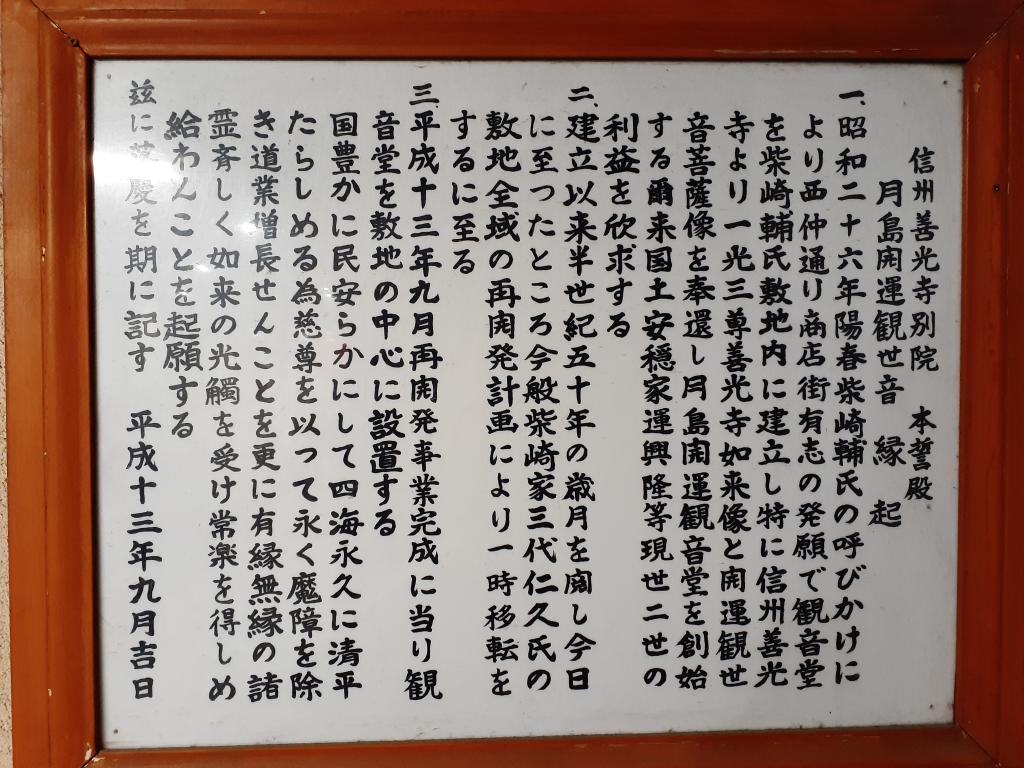 信州善光寺別院　本誓殿
月島開運観世音　縁起
一、昭和二十六年陽春柴崎輔氏の呼びかけに
より西仲通り商店街有志の発願で観音堂
を柴崎輔氏敷地内に建立し特に信州善光
寺より一光三尊善光寺如来像と開運観世
音菩薩像を奉還し月島開運観音堂を創始
する爾来国土安穏家運興隆等現世二世の
利益を欣求する
二、建立以来半世紀五十年の歳月を閲し今日
に至ったところ今般柴崎家三代仁久氏の
敷地全域の再開発計画により一時移転を
するに至る
三、平成十三年九月再開発事業完成に当り観
音堂を敷地の中心に設置する
国豊かに民安らかにして四海永久に清平
たらしめる為慈尊を以って永く魔障を除
き道業増長せんことを更に有縁無縁の諸
霊斉しく如来の光觸を受け常楽を得しめ
給わんことを起願する
茲に落慶を期に記す　平成十三年九月吉日